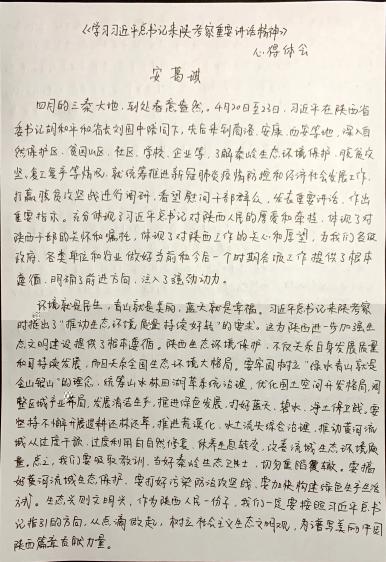 《学习习近平总书记来陕考察重要讲话精神》
心得体会
安葛祺
四月的三秦大地，到处春意盎然。4月20日至23日，习近平在陕西省
委书记胡和平和省长刘国中陪同下，先后来到商洛、安康、西安等地，深入自
然保护区、贫困山区、社区、学校、企业等，了解秦岭生态环境保护、脱贫攻
坚、复工复学等情况，就统筹推进新冠肺炎疫情防控和经济社会发展工作、
打赢脱贫攻坚战进行调研，看望慰问干部群众，发表重要讲话，作出
重要指示。充分体现了习近平总书记对陕西人民的厚爱和牵挂，体现了对
陕西干部的关怀和嘱托，体现了对陕西工作的关心和厚望，为我们各级
政府、各类单位和行业做好当前和今后一个时期各项工作提供了根本
遵循，明确了前进方向，注入了强劲动力。
环境就是民生，青山就是美丽，蓝天就是幸福。习近平总书记来陕考察
时提出了“推动生态环境质量持续好转”的要求。这为陕西进一步加强生
态文明建设提供了根本遵循。陕西生态环境保护，不仅关系自身发展质量
和可持续发展，而且关系全国生态环境大格局。要牢固树立“绿水青山就是
金山银山”的理念，统筹山水林田湖草系统治理，优化国土空间开发格局，调
整区域产业布局，发展清洁生产，推进绿色发展，打好蓝天、碧水、净土保卫战。要
坚持不懈开展退耕还林还草，推进荒漠化、水土流失综合治理，推动黄河流
域从过度干预、过度利用向自然修复、休养生息转变，改善流域生态环境质
量。总之，我们要吸取教训，当好秦岭生态卫士，切勿重蹈覆辙。要搞
好黄河流域生态保护，要打好污染防治攻坚战，要加快构建绿色生产生活
方式。生态兴则文明兴，作为陕西人民一份子，我们一定要按照习近平总书
记指引的方向，从点滴做起，树立社会主义生态文明观，为谱写美丽中国
陕西篇章贡献力量。